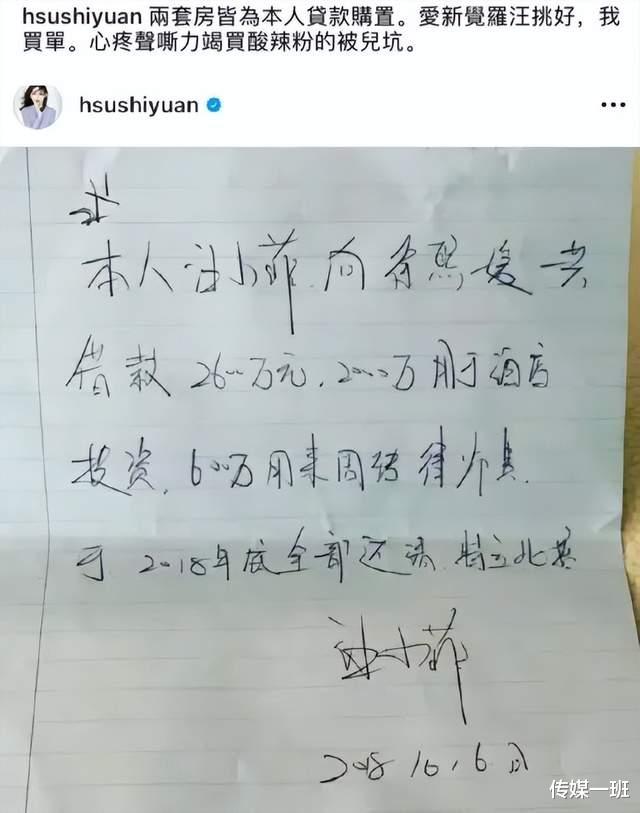 hsushiyuan 兩套房皆為本人貸款購置。愛新覺羅汪挑好，我
買單。心疼聲嘶力竭買酸辣粉的被兒坑。
hsushiyuan
本人汪小菲,向徐熙媛共
借款2600万元,2000万用于酒店
投资,600万用来周转
于2018年底全部还清.特立此
汪小菲
2018 10, 6日
传媒一班